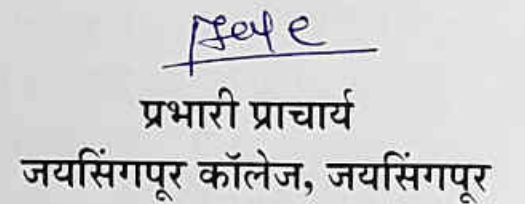 प्रभारी प्राचार्य
जयसिंगपूर कॉलेज, जयसिंगपूर